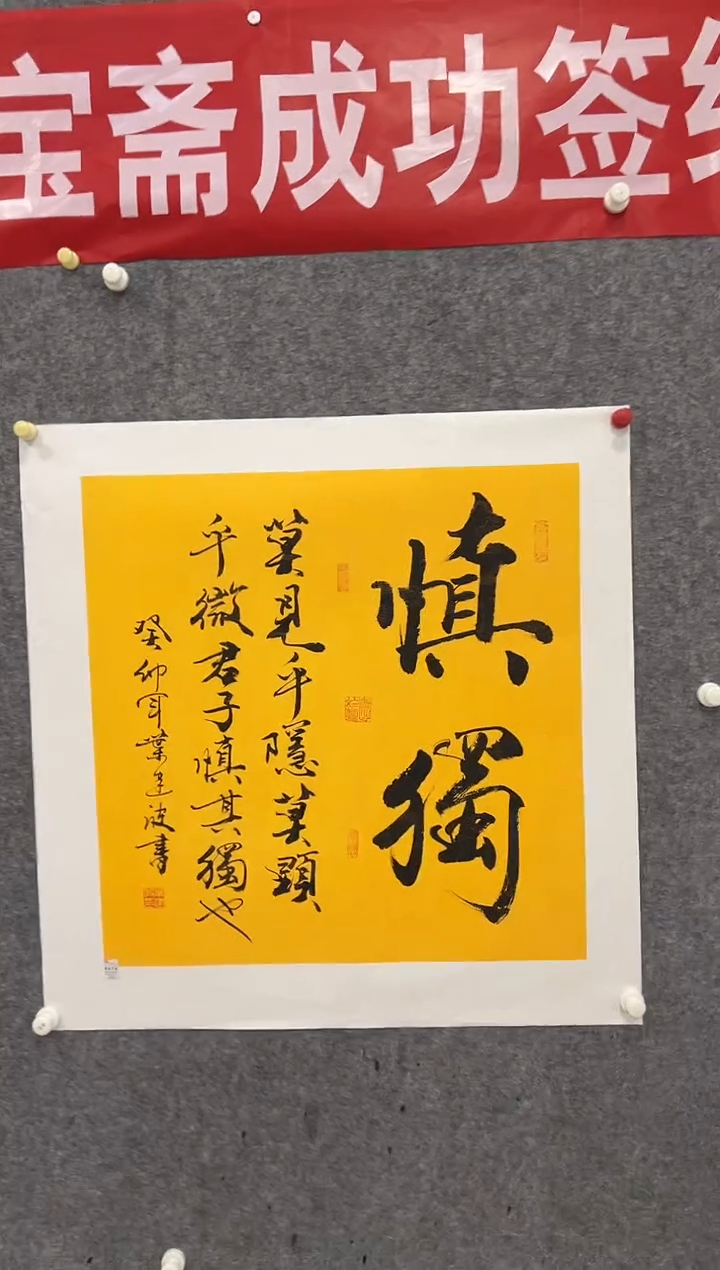 宝斋成功签约
慎獨
莫見乎隱莫顯
乎微君子慎其獨也
癸卯年葉建波書